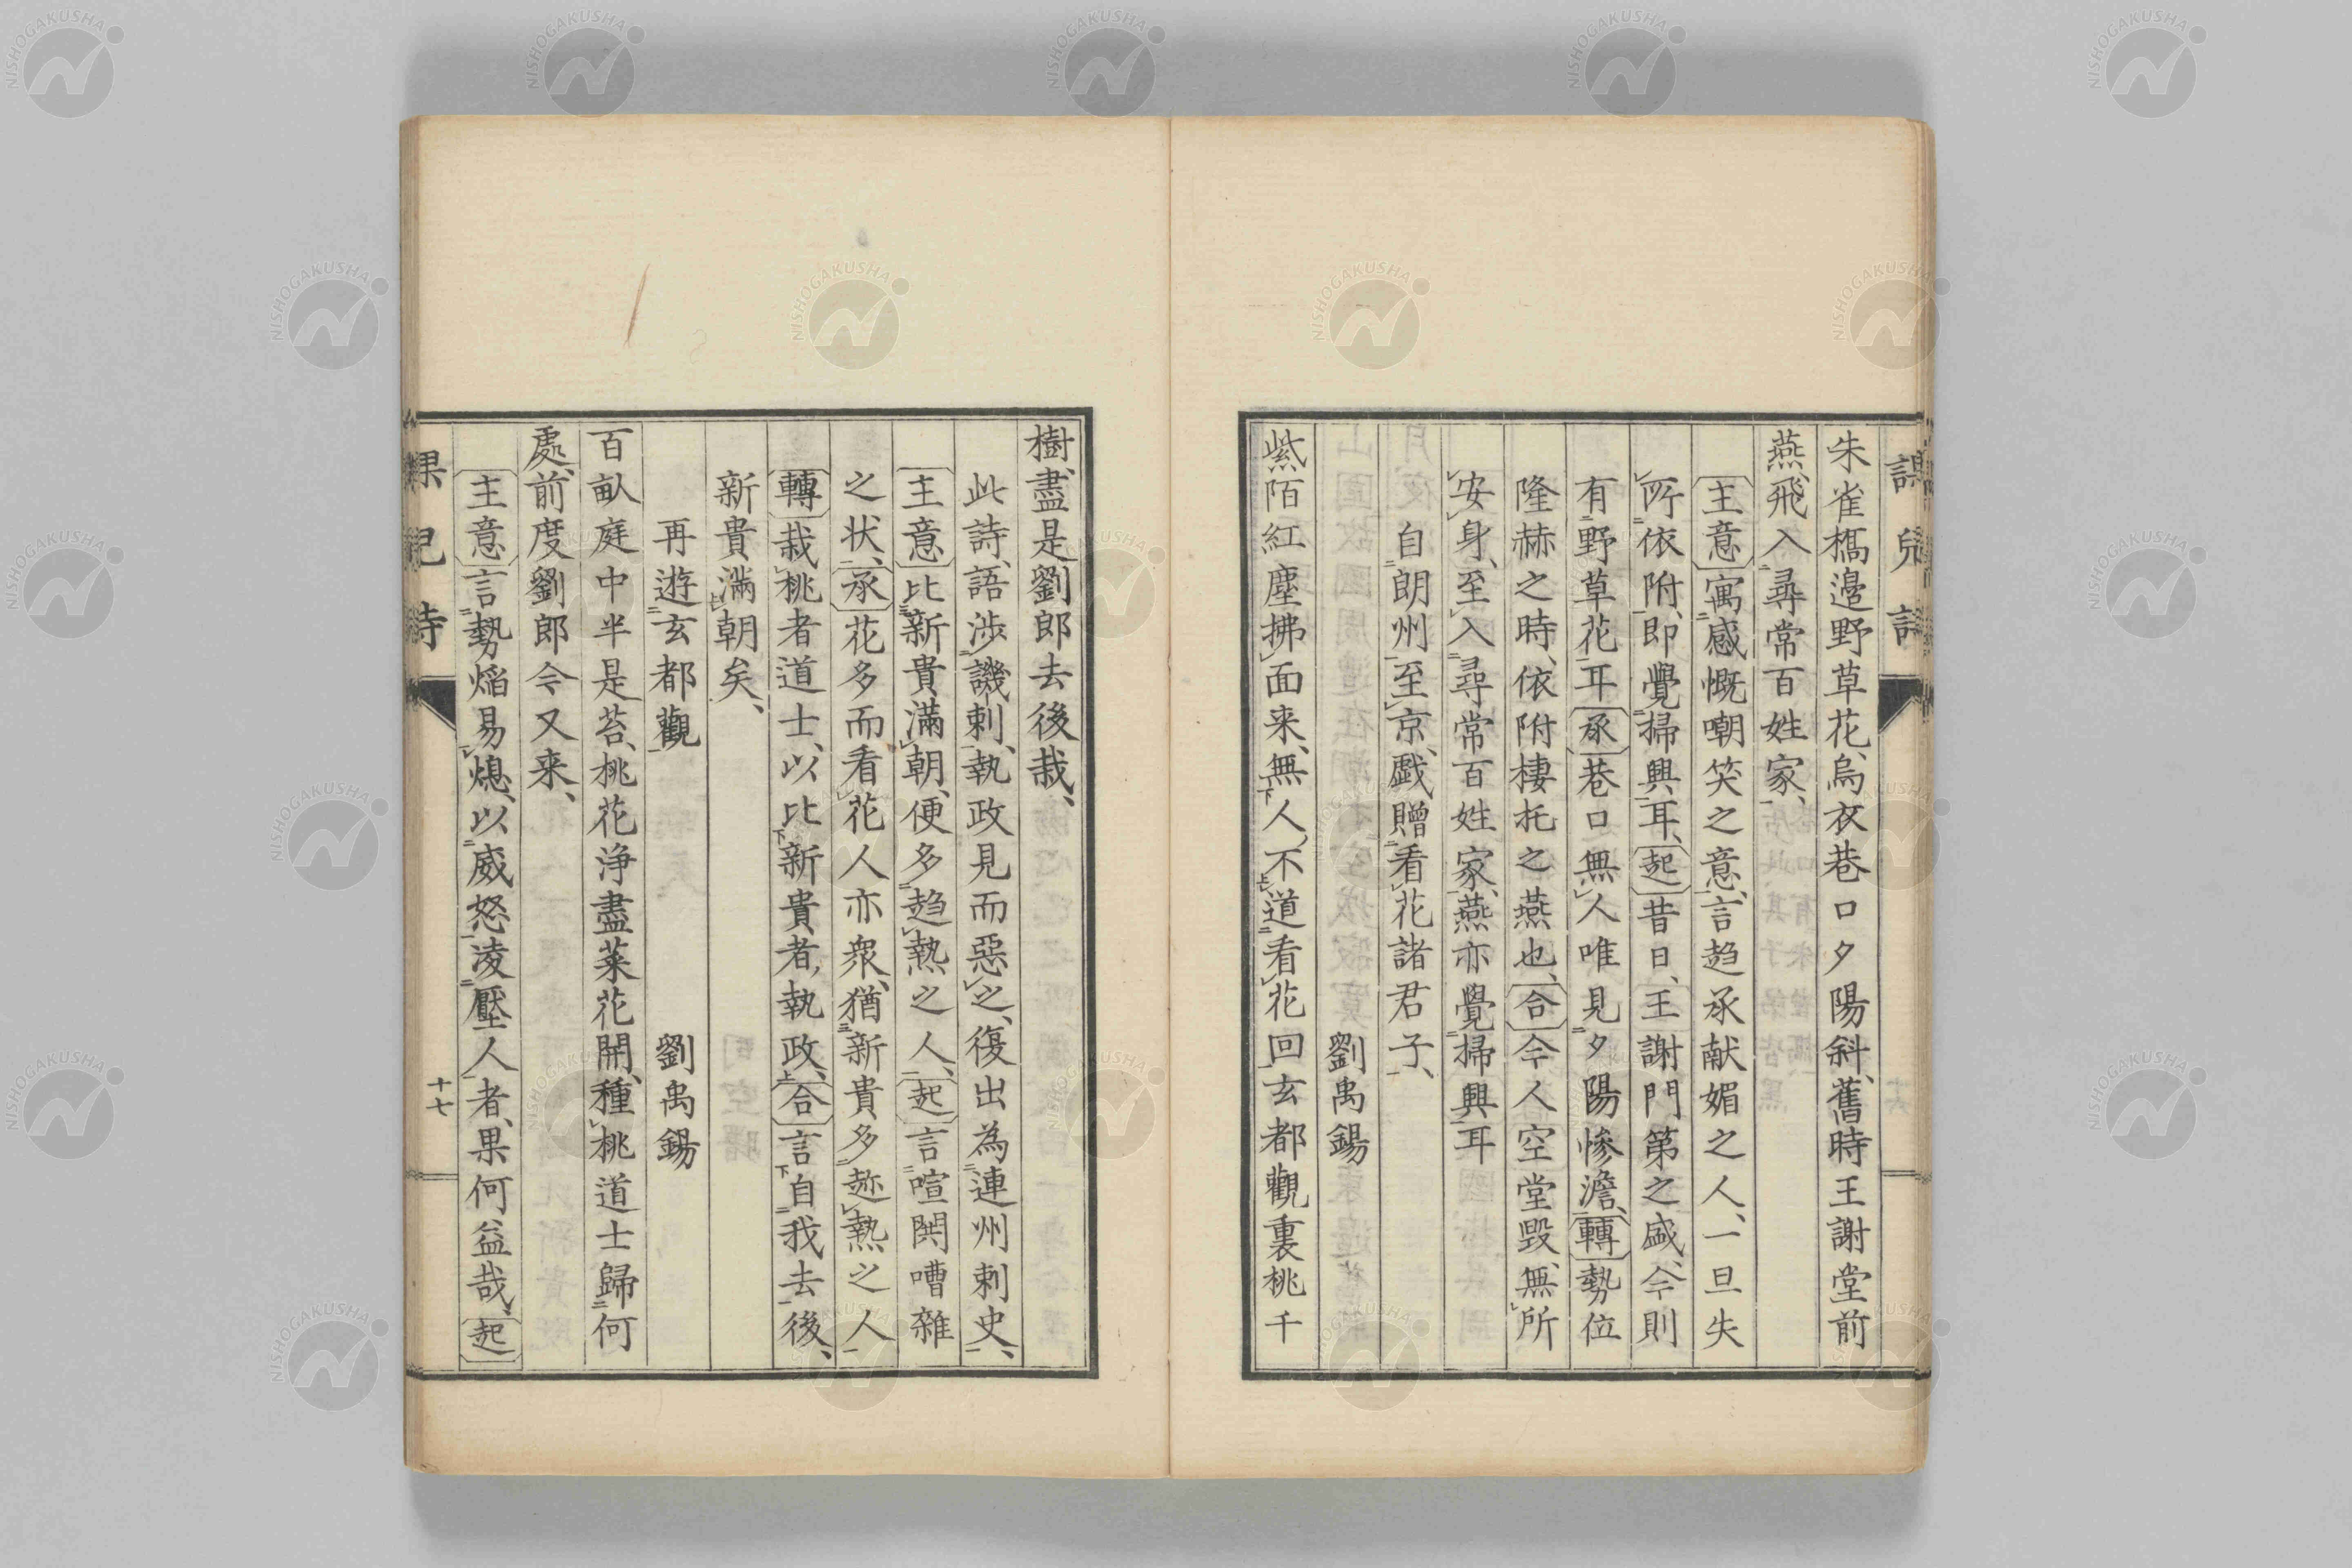 課兒詩
朱雀橋邉野草花、烏衣巷口夕陽斜、舊時王謝堂前
燕、飛入尋常百姓家、
主意寓感慨嘲笑之意、言趋承献媚之人、一旦失
所依附、即覺掃興耳、起昔日、王謝門第之盛、今則
有野草花耳承巷口無人唯見夕陽慘澹、轉勢位
隆赫之時、依附棲托之燕也、合今人空堂毀、無所
安身、至入尋常百姓家、燕亦覺掃興耳
自朗州至京、戯贈看花諸君子、
劉禹錫
紫陌紅塵拂面来、無人不道看花回玄都觀裏桃千
樹、盡是劉郎去後栽、
此詩、語渉譏刺、執政見而惡之、復出為連州刺史、
主意比新貴滿朝、便多趋熱之人、起言喧閧嘈雜
之状、承花多而看花人亦衆、猶新貴多趂熱之人
轉栽桃者道士、以比新貴者、執政、合言自我去後、
新貴滿朝矣、
再遊玄都觀
劉禹錫
百畝庭中半是苔、桃花浄盡菜花開、種桃道士歸何
處、前度劉郎今又来、
主意言勢焔易熄、以威怒凌壓人者、果何益哉、起
課兒詩
十七
NISHOGAKUSHA